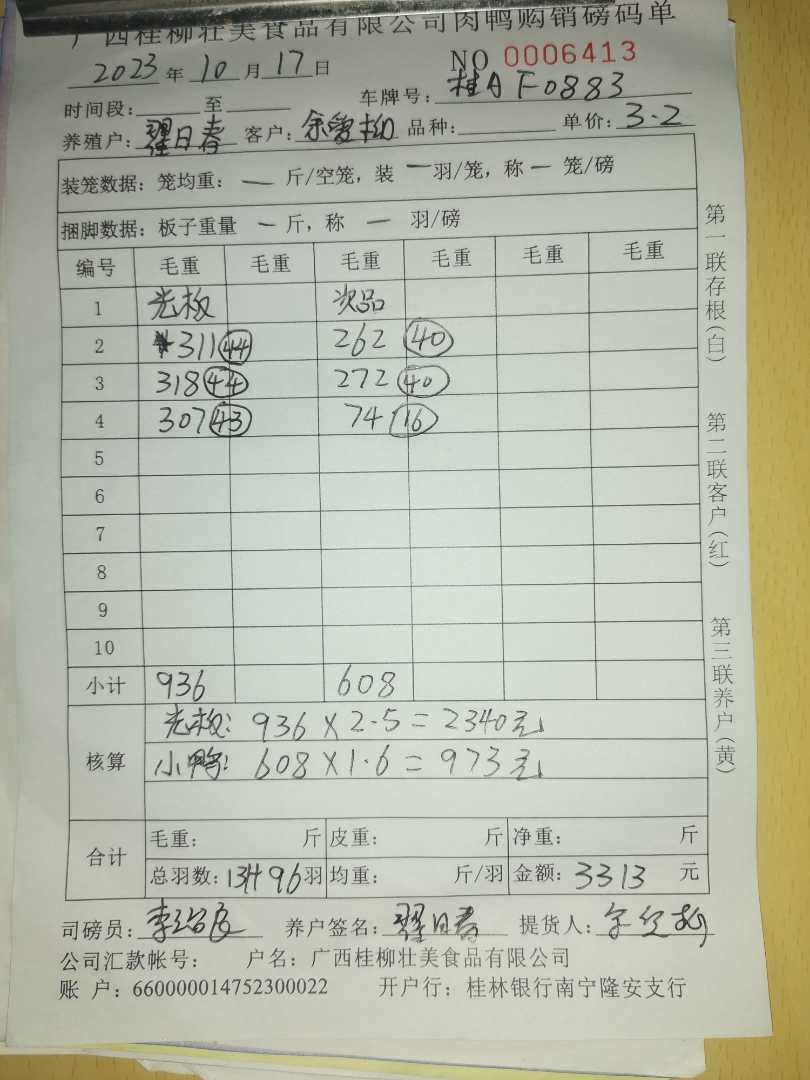 广西桂柳壮美食品有限公司肉鸭购销磅码单
2023年10月17日 NO 0006413
时间段: 至 车牌号: 桂A F0883
养殖户: 翟日春 客户: 余爱柳 品种: 单价: 3.2
装笼数据: 笼均重: — 斤/空笼, 装 — 羽/笼, 称 — 笼/磅
捆脚数据: 板子重量 — 斤, 称 — 羽/磅
编号 毛重 毛重 毛重 毛重 毛重 毛重
1 光板 次品
2 311 44 262 40
3 318 44 272 40
4 307 43 74 16
5
6
7
8
9
10
小计 936 608
核算
光板: 936 × 2.5 = 2340元
小鸭: 608 × 1.6 = 973元
合计
毛重: 斤 皮重: 斤 净重: 斤
总羽数: 131 96 羽 均重: 斤/羽 金额: 3313 元
司磅员: 养户签名: 翟日春 提货人:
公司汇款帐号: 户名: 广西桂柳壮美食品有限公司
账 户: 660000014752300022 开户行: 桂林银行南宁隆安支行
第一联存根(白)
第二联客户(红)
第三联养户(黄)